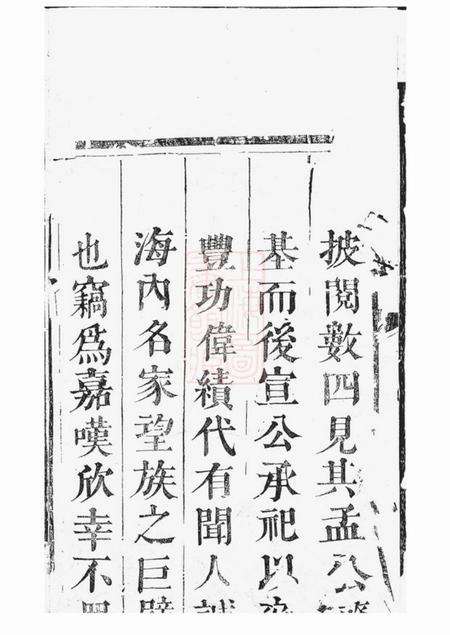 披閱數四見其孟公
基而後宣公承祀以來
豐功偉績代有聞人誠
海內名家望族之巨擘
也竊爲嘉嘆欣幸不